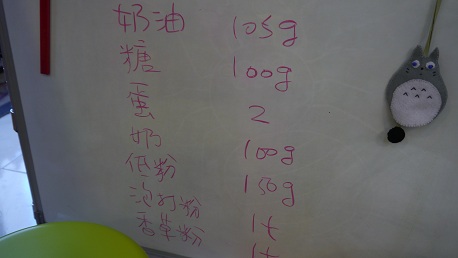 奶油 105g
糖 100g
蛋 2
奶 100g
低粉 150g
泡打粉 1t
香草粉 1t